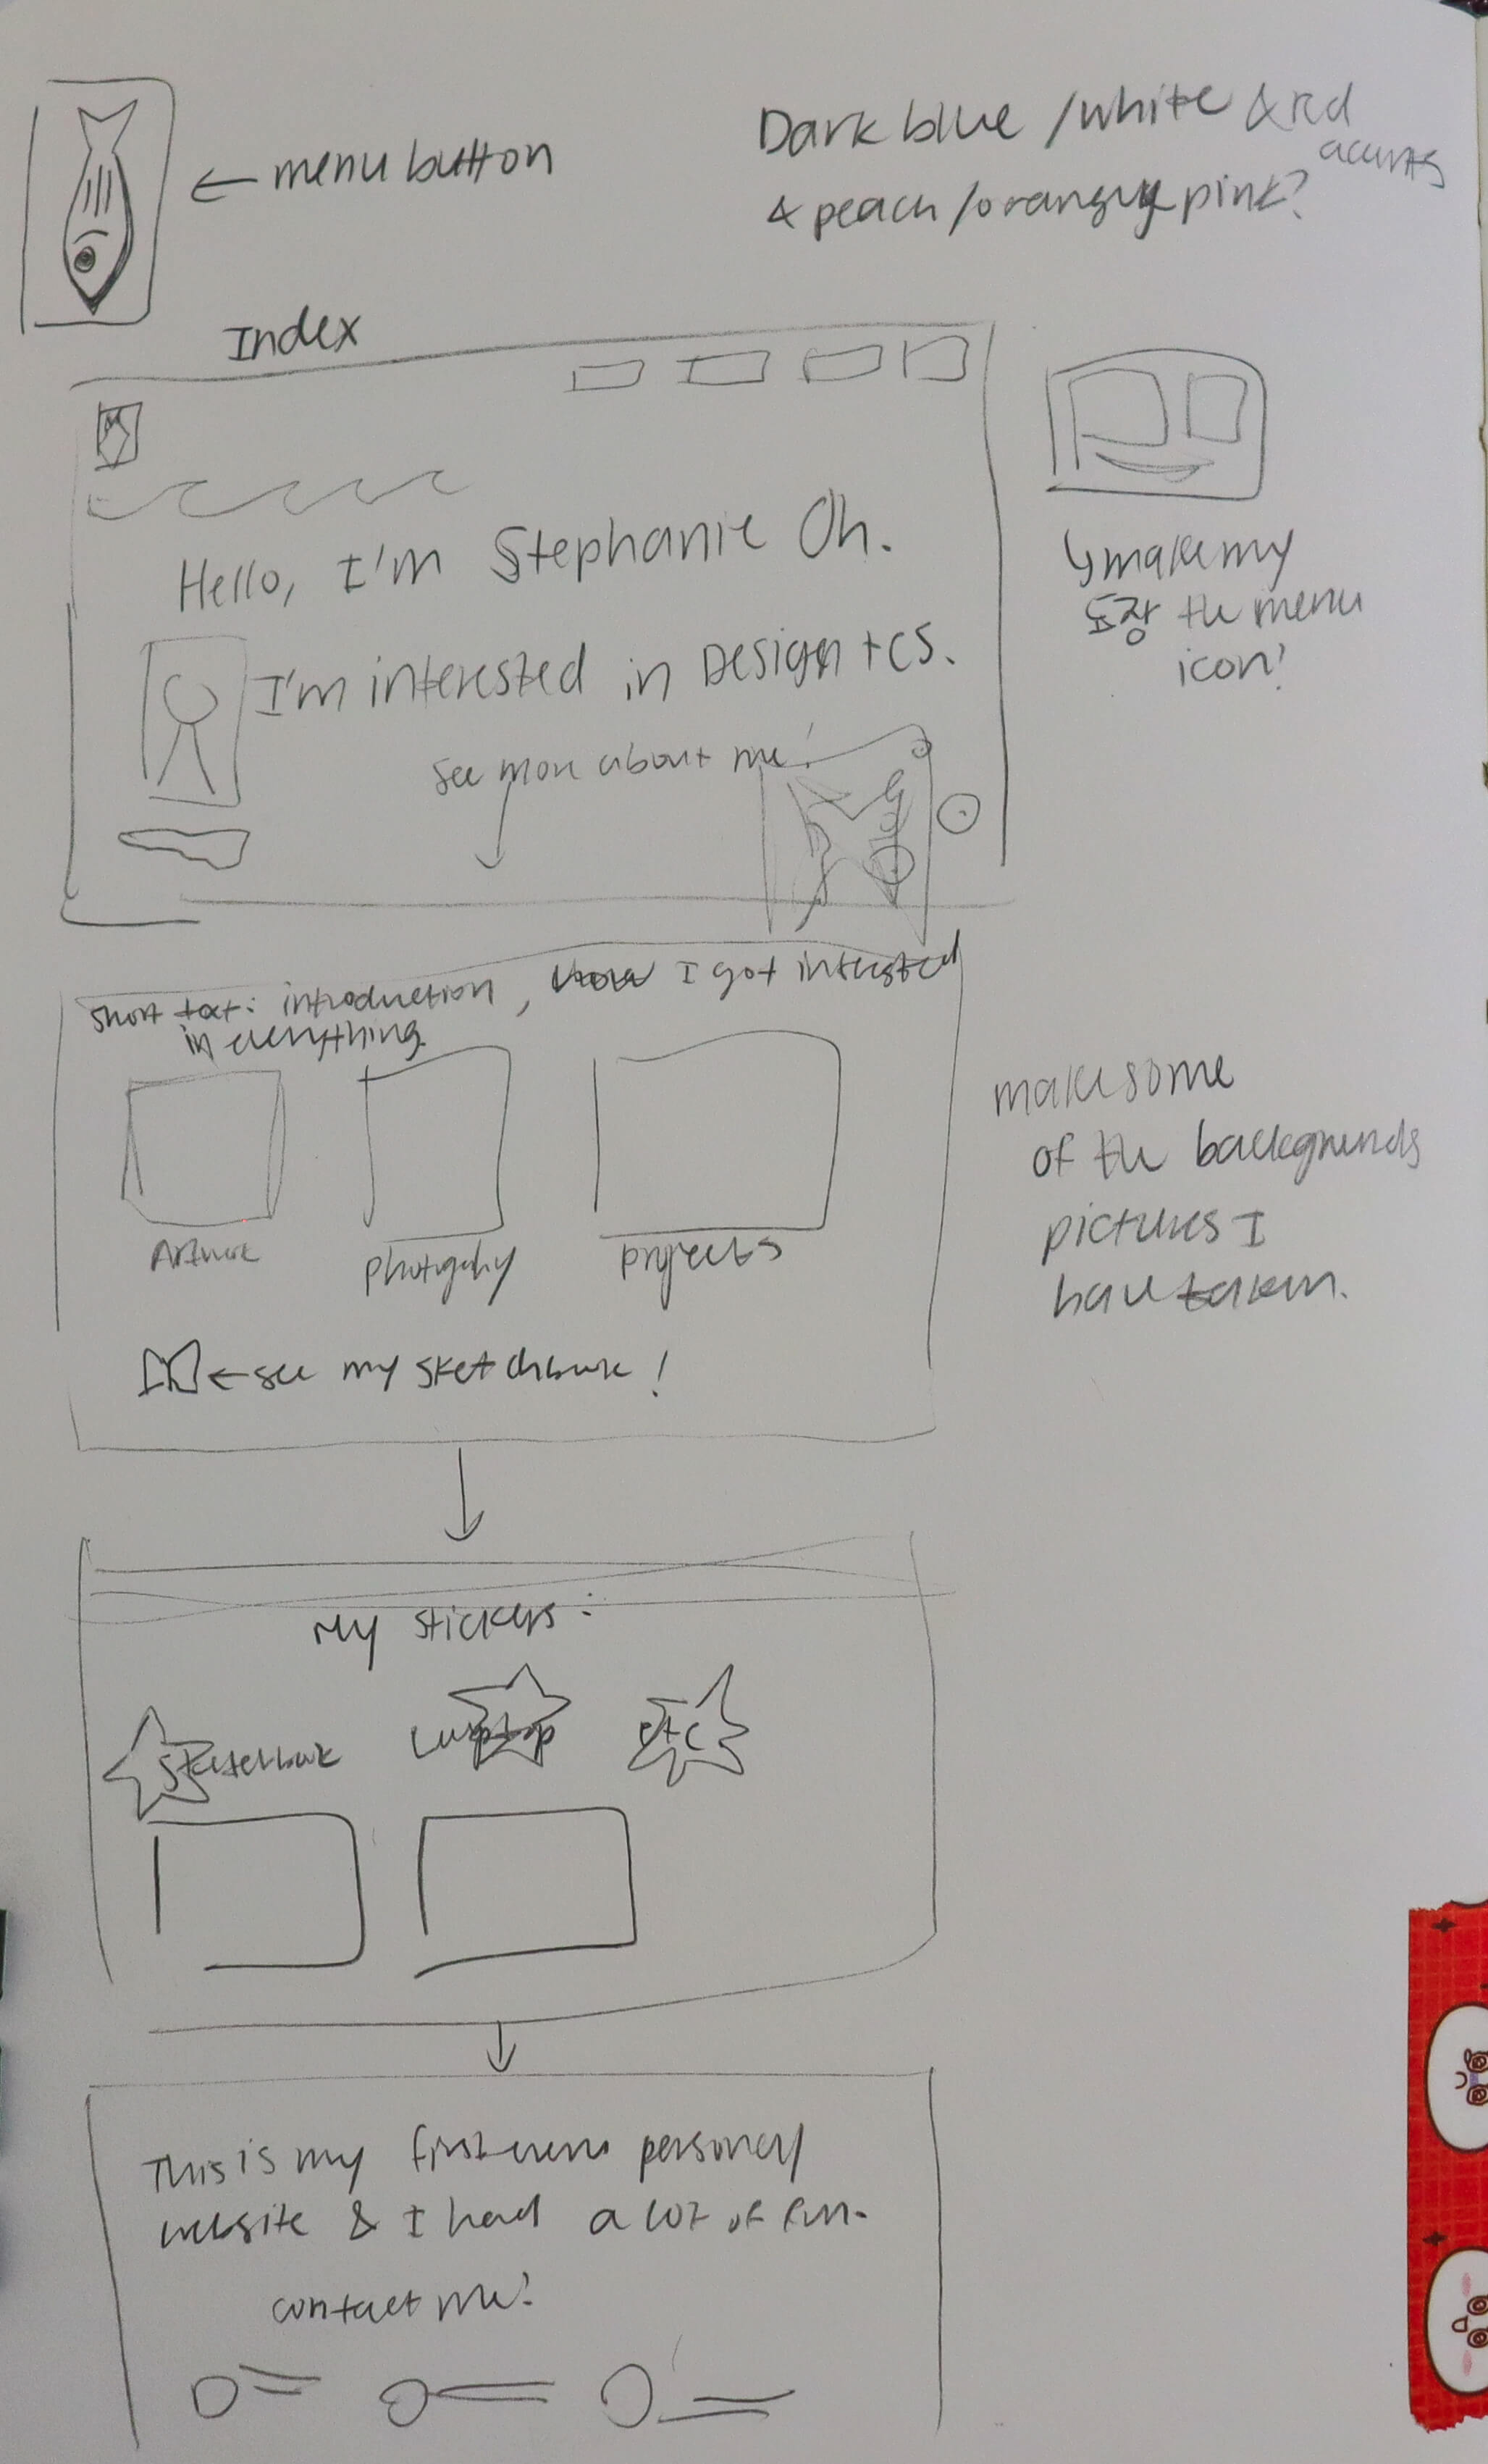 ← menu button
Dark blue / white & red
accents
& peach / orangey pink?
Index
Hello, I'm Stephanie Oh.
I'm interested in Design + CS.
see more about me!
↳ make my
도장 the menu
icon!
short text: introduction, how I got interested
in everything.
Artwork
photography
projects
← see my sketchbook!
make some
of the backgrounds
pictures I
have taken.
My stickers:
sketchbook
Laptop
etc
This is my first ever personal
website & I had a lot of fun.
contact me!